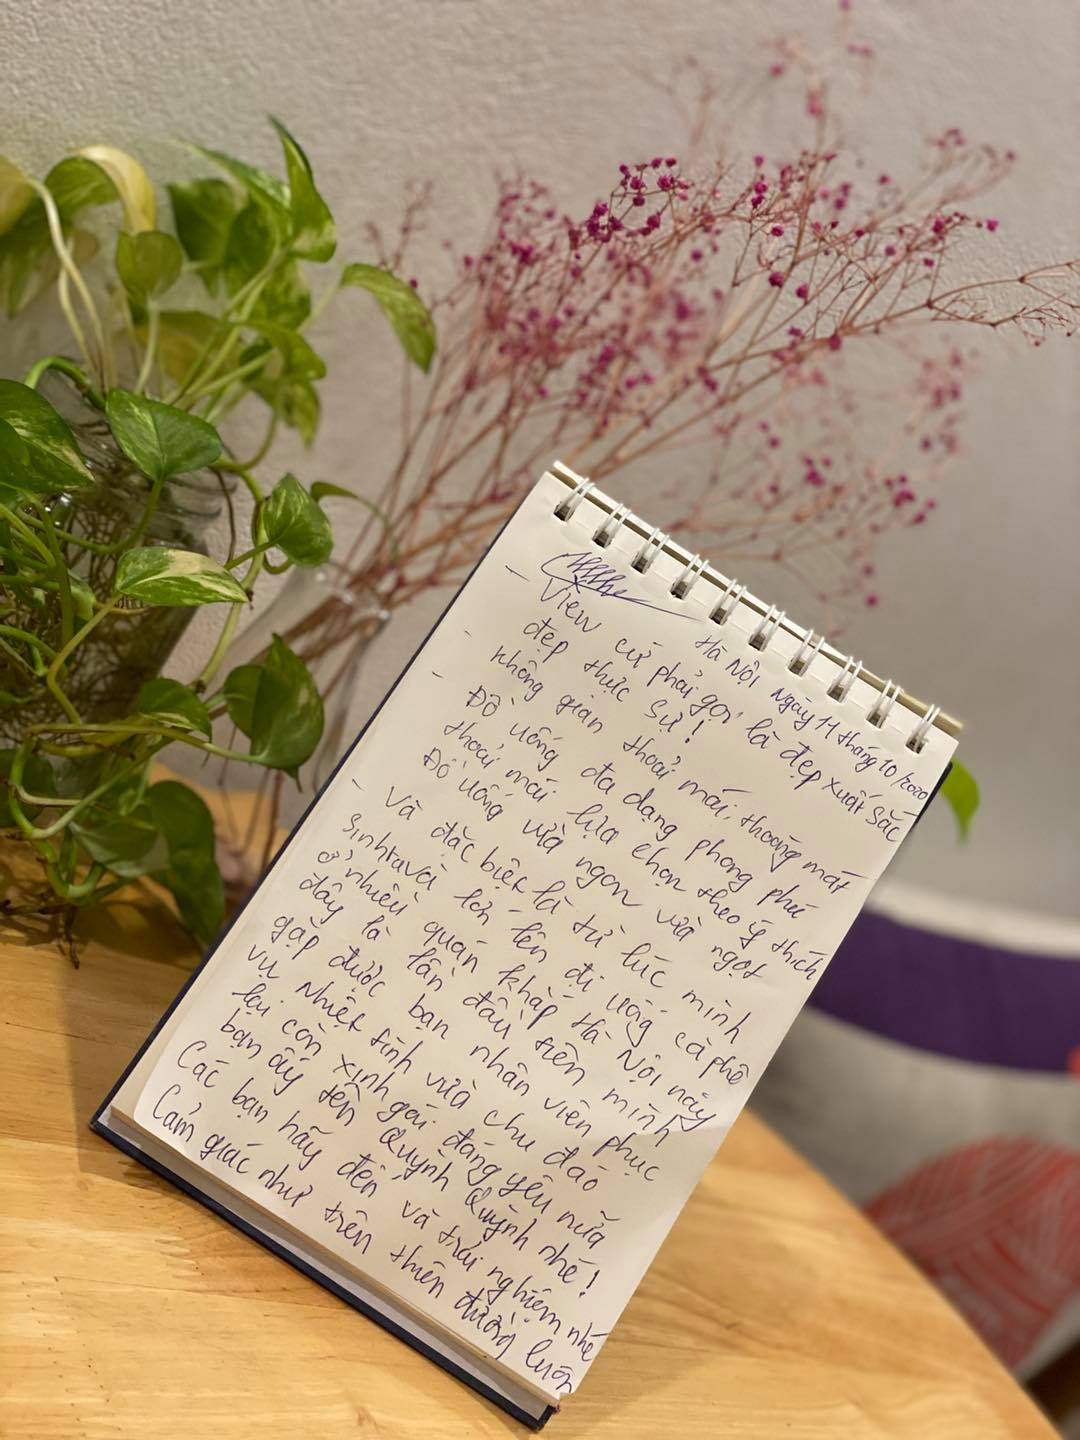 Hà Nội ngày 11 tháng 10/2020
- View cứ phải gọi là đẹp xuất sắc
đẹp thực sự!
- Không gian thoải mái, thoáng mát
- Đồ uống đa dạng phong phú
thoải mái lựa chọn theo ý thích
Đồ uống vừa ngon vừa ngọt
- Và đặc biệt là từ lúc mình
sinh ra và lớn lên đi uống cà phê
ở nhiều quán khắp Hà Nội này
đây là lần đầu tiên mình
gặp được bạn nhân viên phục
vụ nhiệt tình vừa chu đáo
lại còn xinh gái đáng yêu nữa
bạn ấy tên Quỳnh Quỳnh nhé!
Các bạn hãy đến và trải nghiệm nhé
Cảm giác như trên thiên đường luôn